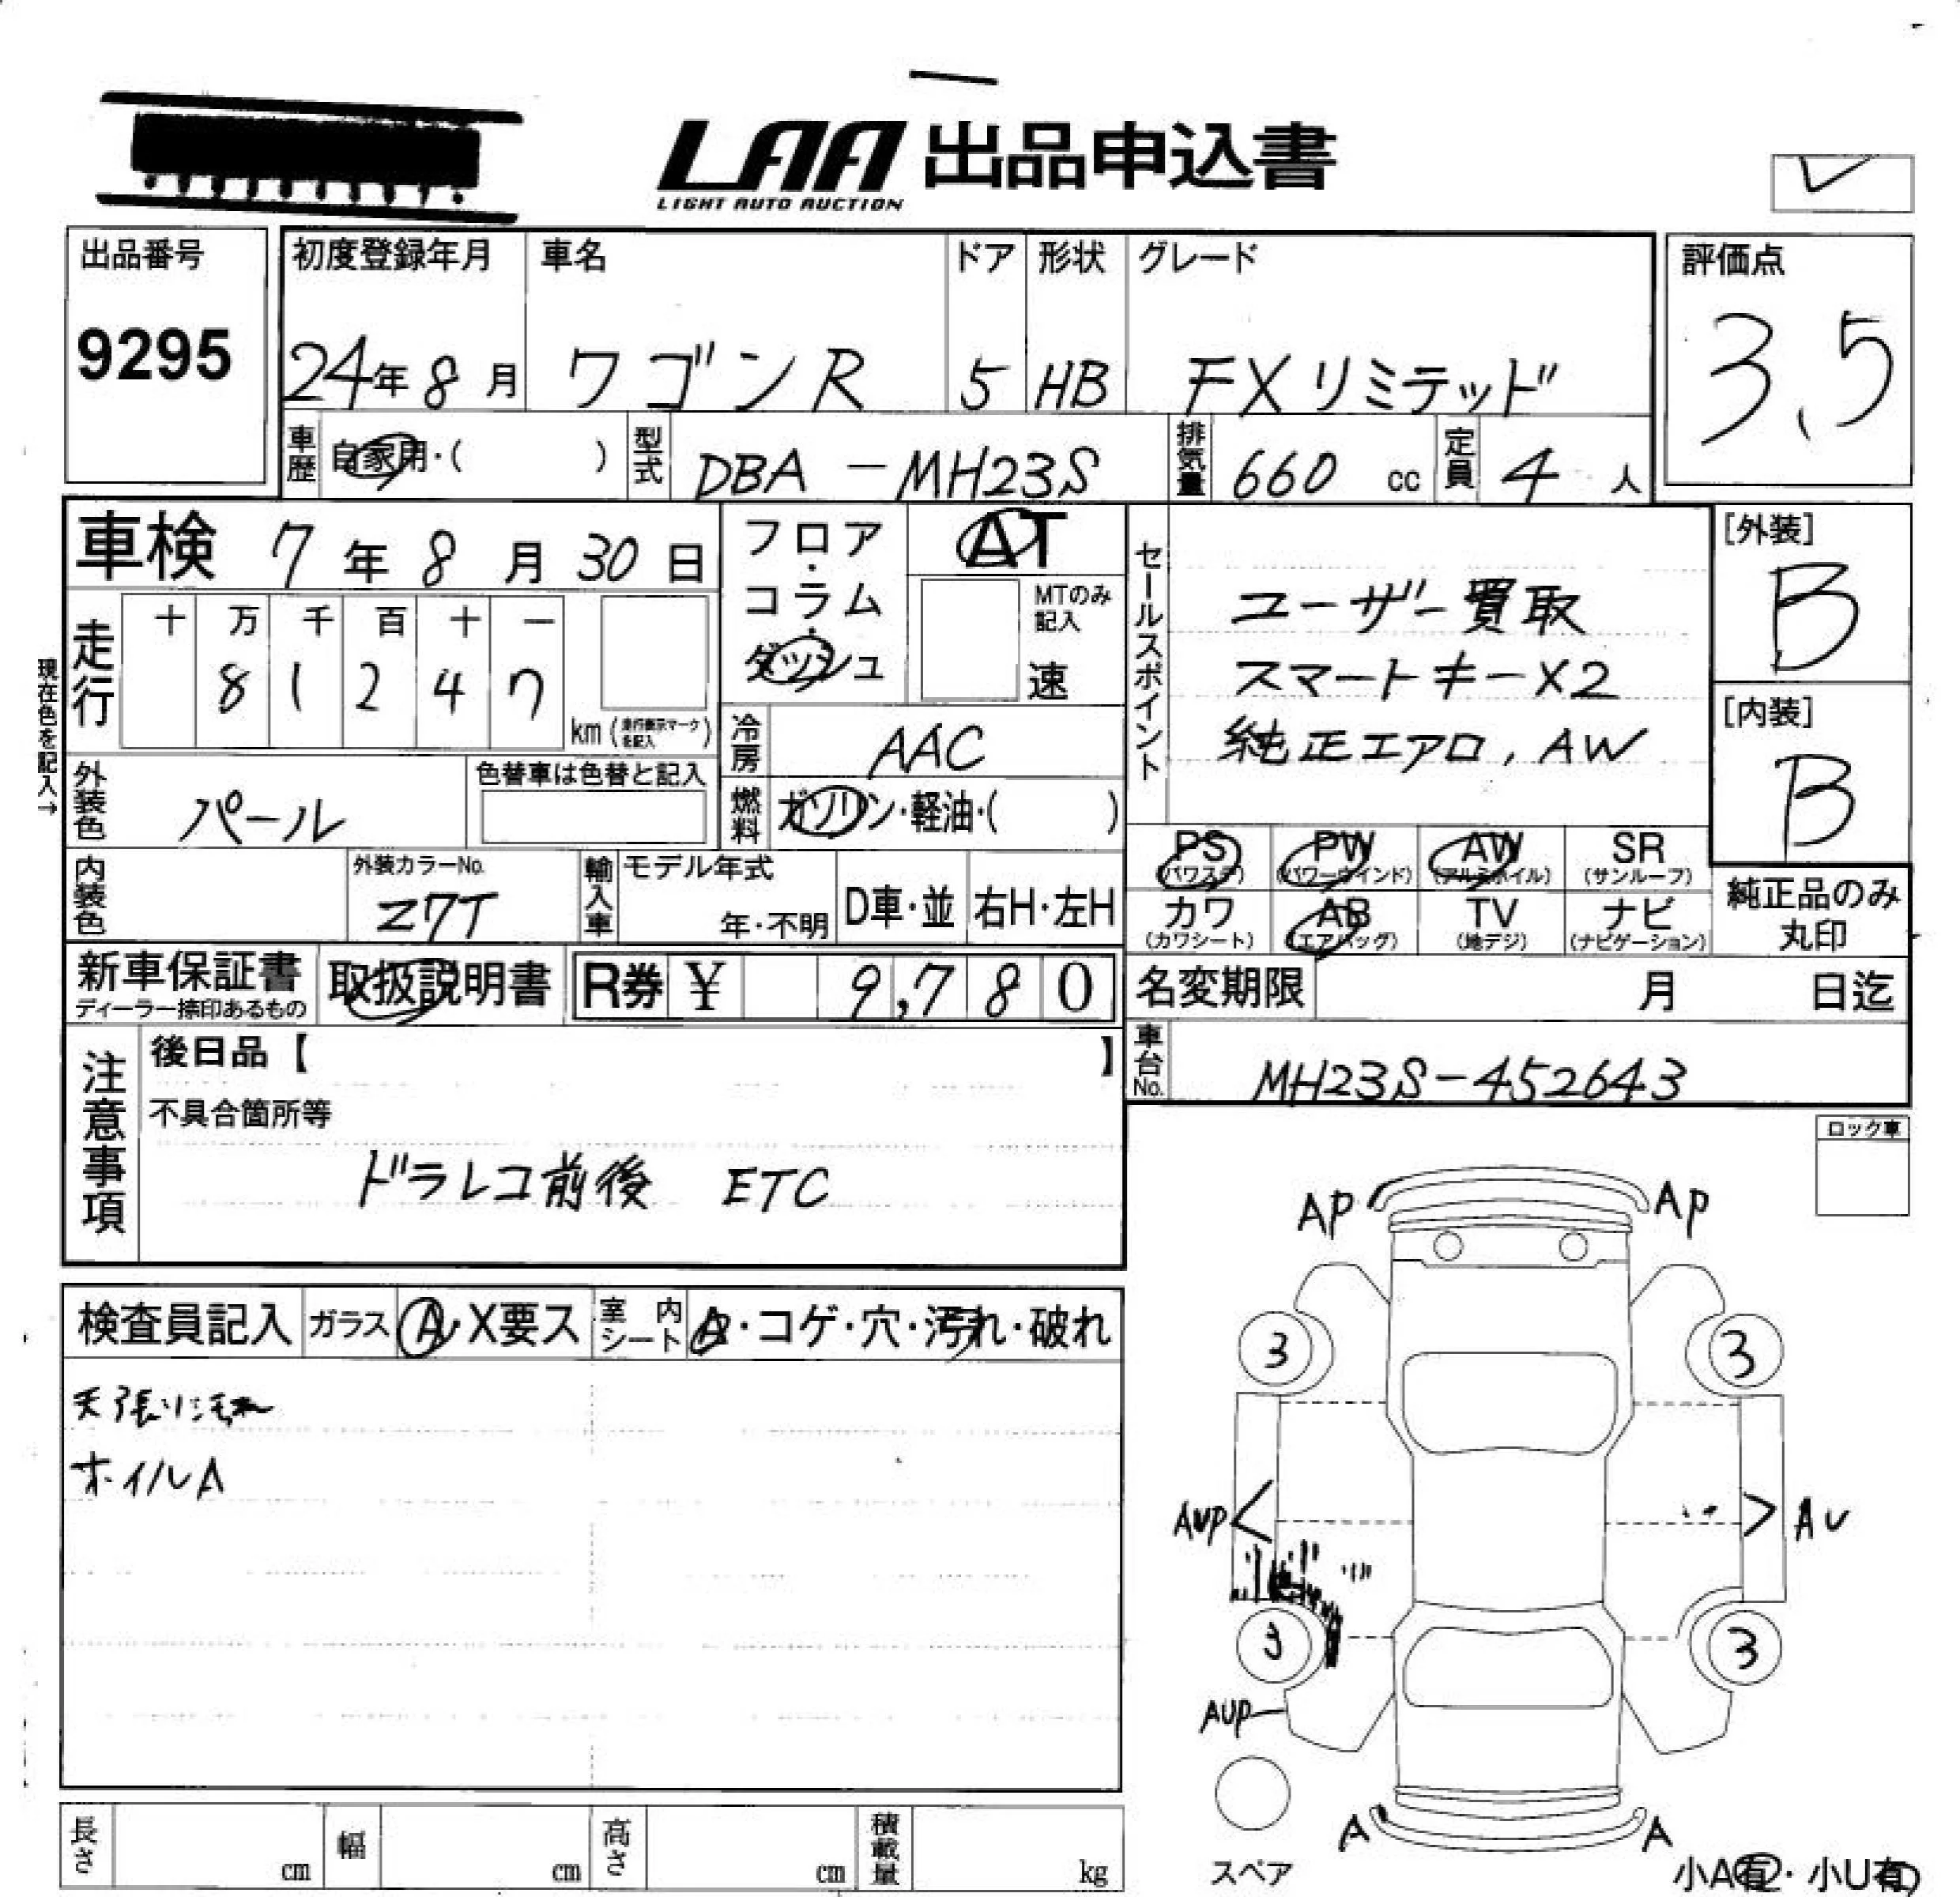 LAA 出品申込書
LIGHT AUTO AUCTION
出品番号
9295
初度登録年月
24年8月
車名
ワゴンR
ドア
5
形状
HB
グレード
FXリミテッド
評価点
3.5
車歴
自家用・( )
型式
DBA-MH23S
排気量
660 cc
定員
4 人
車検 7年8月30日
フロア・コラム・ダッシュ
AT
MTのみ記入
速
現在色を記入→
走行
十 万 千 百 十 一
8 1 2 4 7
km(走行表示マークを記入)
冷房
AAC
外装色
パール
色替車は色替と記入
燃料
ガソリン・軽油・( )
内装色
外装カラーNo.
Z7T
輸入車
モデル年式
年・不明
D車・並
右H・左H
セールスポイント
ユーザー買取
スマートキーX2
純正エアロ, AW
[外装]
B
[内装]
B
PS
(パワステ)
PW
(パワーウインド)
AW
(アルミホイル)
SR
(サンルーフ)
カワ
(カワシート)
AB
(エアバッグ)
TV
(地デジ)
ナビ
(ナビゲーション)
純正品のみ
丸印
新車保証書
ディーラー捺印あるもの
取扱説明書
R券 ¥ 9,780
名変期限 月 日迄
車台No.
MH23S-452643
注意事項
後日品【 】
不具合箇所等
ドラレコ前後 ETC
ロック車
検査員記入
ガラス
A・X要ス
室内シート
・コゲ・穴・汚れ・破れ
天張リ汚れ
ホイルA
AP
AP
3
3
AUP
AU
3
3
AUP
A
A
スペア
小A有・小U有
長さ
cm
幅
cm
高さ
cm
積載量
kg